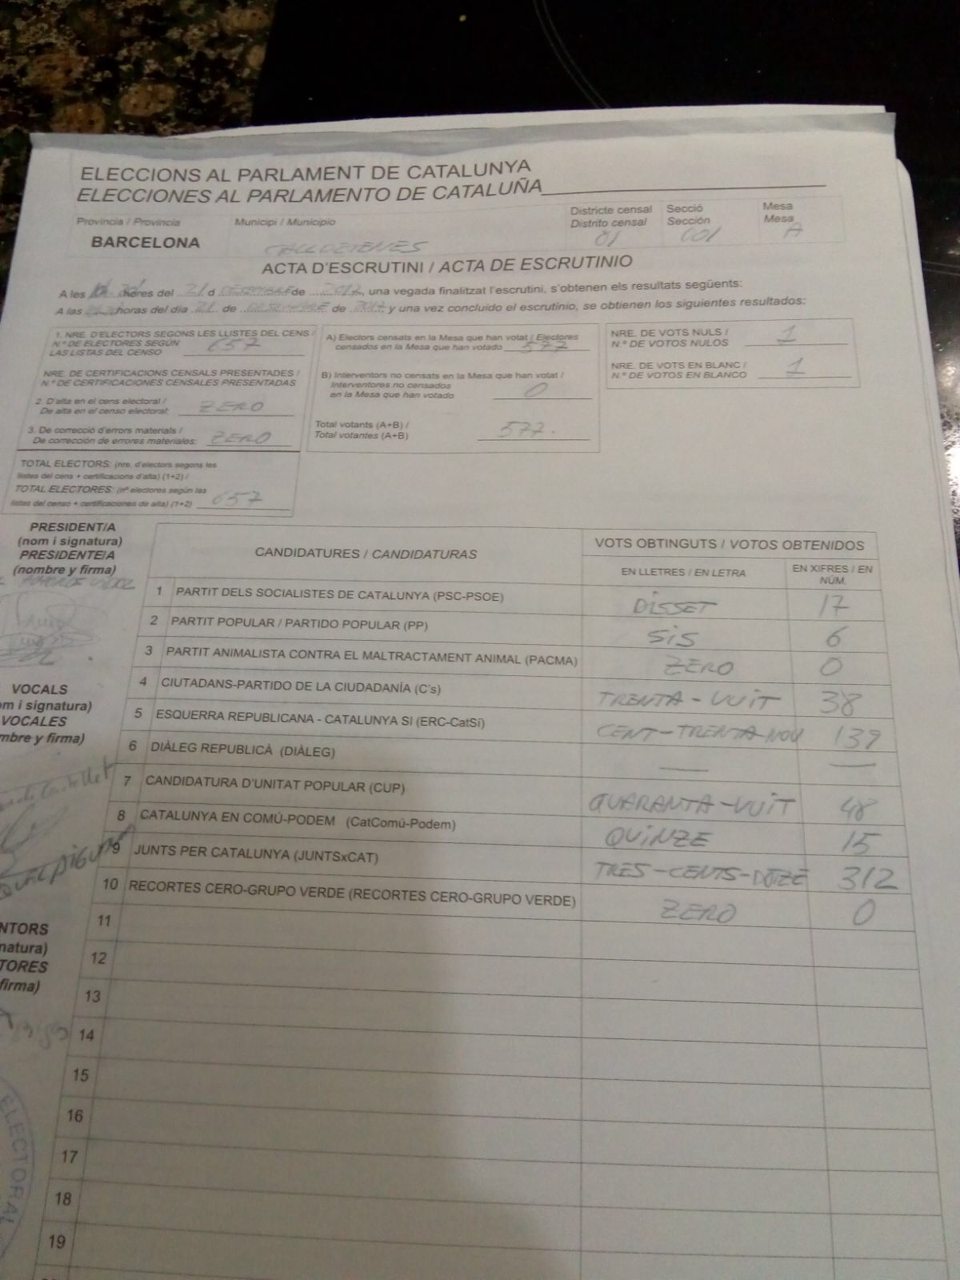 ELECCIONS AL PARLAMENT DE CATALUNYA
ELECCIONES AL PARLAMENTO DE CATALUÑA
Província / Provincia
Municipi / Municipio
Districte censal
Distrito censal
Secció
Sección
Mesa
Mesa
BARCELONA
CALLDETENES
01
001
A
ACTA D'ESCRUTINI / ACTA DE ESCRUTINIO
A les hores del 21 d DESEMBRE de 2017, una vegada finalitzat l'escrutini, s'obtenen els resultats següents:
A las horas del día 21 de de 2017 y una vez concluido el escrutinio, se obtienen los siguientes resultados:
1. NRE. D'ELECTORS SEGONS LES LLISTES DEL CENS /
N.º DE ELECTORES SEGÚN
LAS LISTAS DEL CENSO
657
NRE. DE CERTIFICACIONS CENSALS PRESENTADES /
N.º DE CERTIFICACIONES CENSALES PRESENTADAS
2. D'alta en el cens electoral /
De alta en el censo electoral:
ZERO
3. De correcció d'errors materials /
De corrección de errores materiales:
ZERO
TOTAL ELECTORS: (nre. d'electors segons les
llistes del cens + certificacions d'alta) (1+2) /
TOTAL ELECTORES: (nº electores según las
listas del censo + certificaciones de alta) (1+2)
657
A) Electors censats en la Mesa que han votat / Electores
censados en la Mesa que han votado
577
B) Interventors no censats en la Mesa que han votat /
Interventores no censados
en la Mesa que han votado
0
Total votants (A+B) /
Total votantes (A+B)
577.
NRE. DE VOTS NULS /
N.º DE VOTOS NULOS
1
NRE. DE VOTS EN BLANC /
N.º DE VOTOS EN BLANCO
1
PRESIDENT/A
(nom i signatura)
PRESIDENTE/A
(nombre y firma)
VOCALS
om i signatura)
VOCALES
mbre y firma)
NTORS
natura)
TORES
firma)
ELECTORAL
CANDIDATURES / CANDIDATURAS
VOTS OBTINGUTS / VOTOS OBTENIDOS
EN LLETRES / EN LETRA
EN XIFRES / EN NÚM.
1 PARTIT DELS SOCIALISTES DE CATALUNYA (PSC-PSOE) DISSET 17
2 PARTIT POPULAR / PARTIDO POPULAR (PP) SIS 6
3 PARTIT ANIMALISTA CONTRA EL MALTRACTAMENT ANIMAL (PACMA) ZERO 0
4 CIUTADANS-PARTIDO DE LA CIUDADANÍA (C's) TRENTA-VUIT 38
5 ESQUERRA REPUBLICANA - CATALUNYA SÍ (ERC-CatSí) CENT-TRENTA-NOU 139
6 DIÀLEG REPUBLICÀ (DIÀLEG) — —
7 CANDIDATURA D'UNITAT POPULAR (CUP) QUARANTA-VUIT 48
8 CATALUNYA EN COMÚ-PODEM (CatComú-Podem) QUINZE 15
9 JUNTS PER CATALUNYA (JUNTSxCAT) TRES-CENTS-DOTZE 312
10 RECORTES CERO-GRUPO VERDE (RECORTES CERO-GRUPO VERDE) ZERO 0
11
12
13
14
15
16
17
18
19